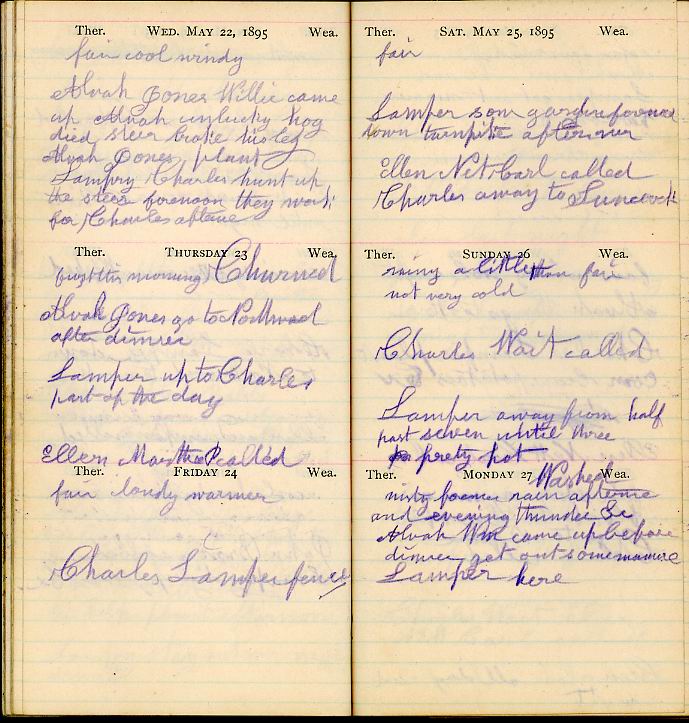 Ther. WED. MAY 22, 1895 Wea.
fair cool windy
Alvah Jones Willie came
up Alvah unlucky hog
died steer broke his leg
Alvah Jones plant
Lampry Charles hunt up
the steer forenoon they work
for Charles aftane
Ther. THURSDAY 23 Wea.
frost this morning Churned
Alvah Jones go to
after dinner
Lamper up to Charles
part of the day
Ellen Martha P called
Ther. FRIDAY 24 Wea.
fair loudy warmer
Charles Lamper fence
Ther. SAT. MAY 25, 1895 Wea.
fair
Lamper som garden forenoon
town turnpike afternoon
Ellen Net Carl called
Charles away to Suncook
Ther. SUNDAY 26 Wea.
rainy a little than fair
not very cold
Charles Wait called
Lamper away from half
past seven until three
prety hot
Ther. MONDAY 27 Wea.
Washed
misty forenoon rain aftene
and evening thunder &c
Alvah Wm came up before
dinner get out some manure
Lamper here